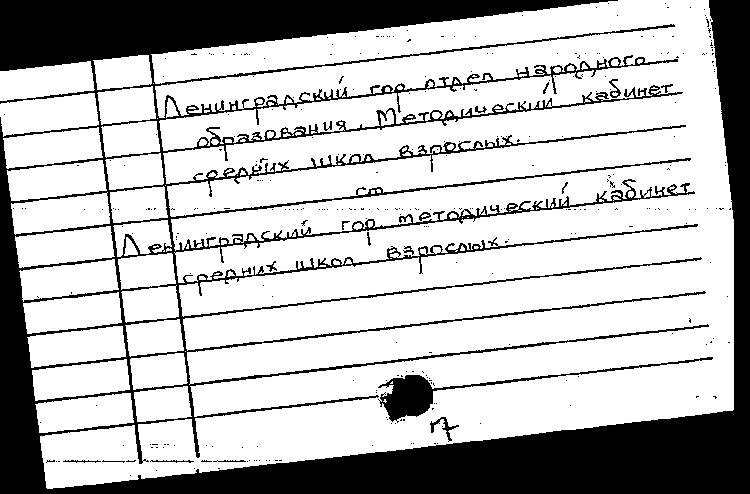 Ленинградский гор. отдел народного
образования. Методический кабинет
средних школ взрослых.
см
Ленинградский гор. методический кабинет
средних школ взрослых.